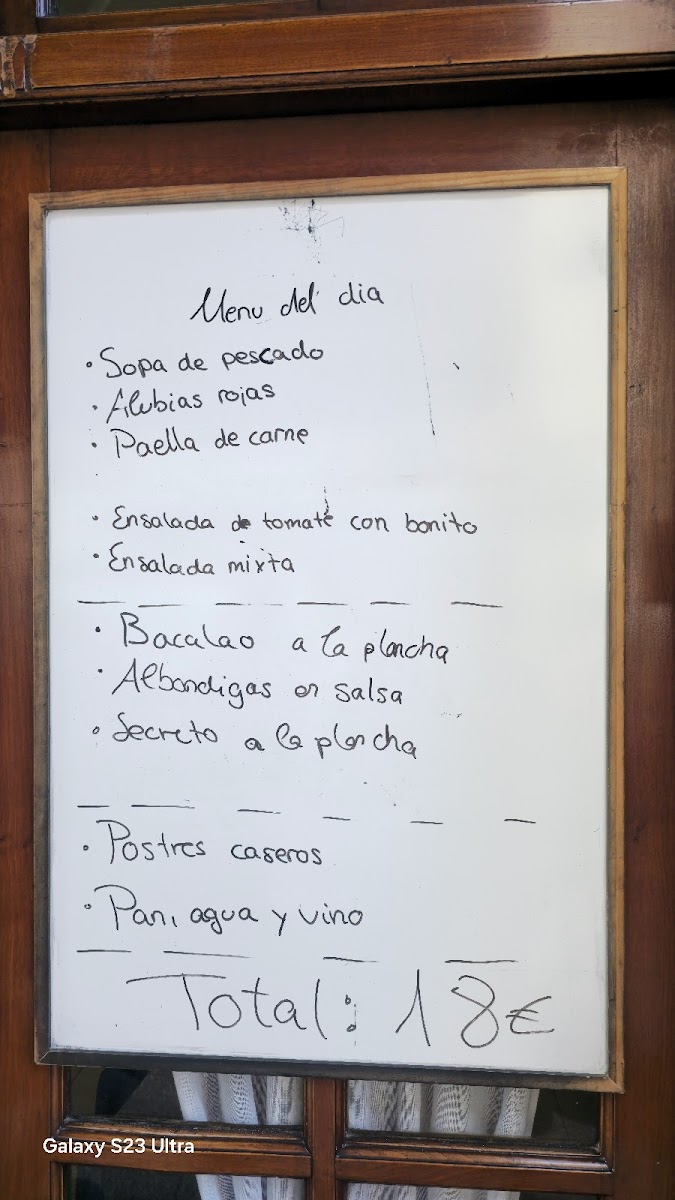 Menu del dia
· Sopa de pescado
· Alubias rojas
· Paella de carne
· Ensalada de tomate con bonito
· Ensalada mixta
· Bacalao a la plancha
· Albondigas en salsa
· Secreto a la plancha
· Postres caseros
· Pan, agua y vino
Total: 18€
Galaxy S23 Ultra